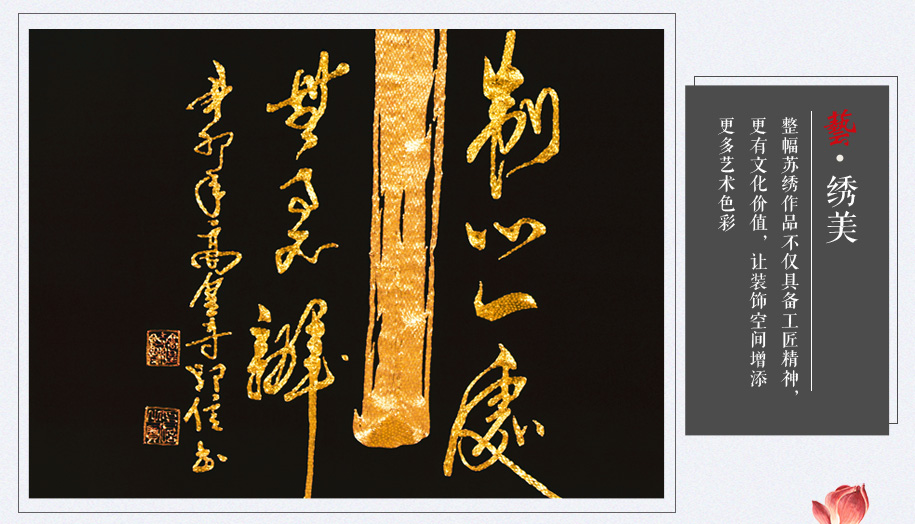 制心一處
無事不辦
辛卯年高
藝·绣美
整幅苏绣作品不仅具备工匠精神，
更有文化价值，让装饰空间增添
更多艺术色彩